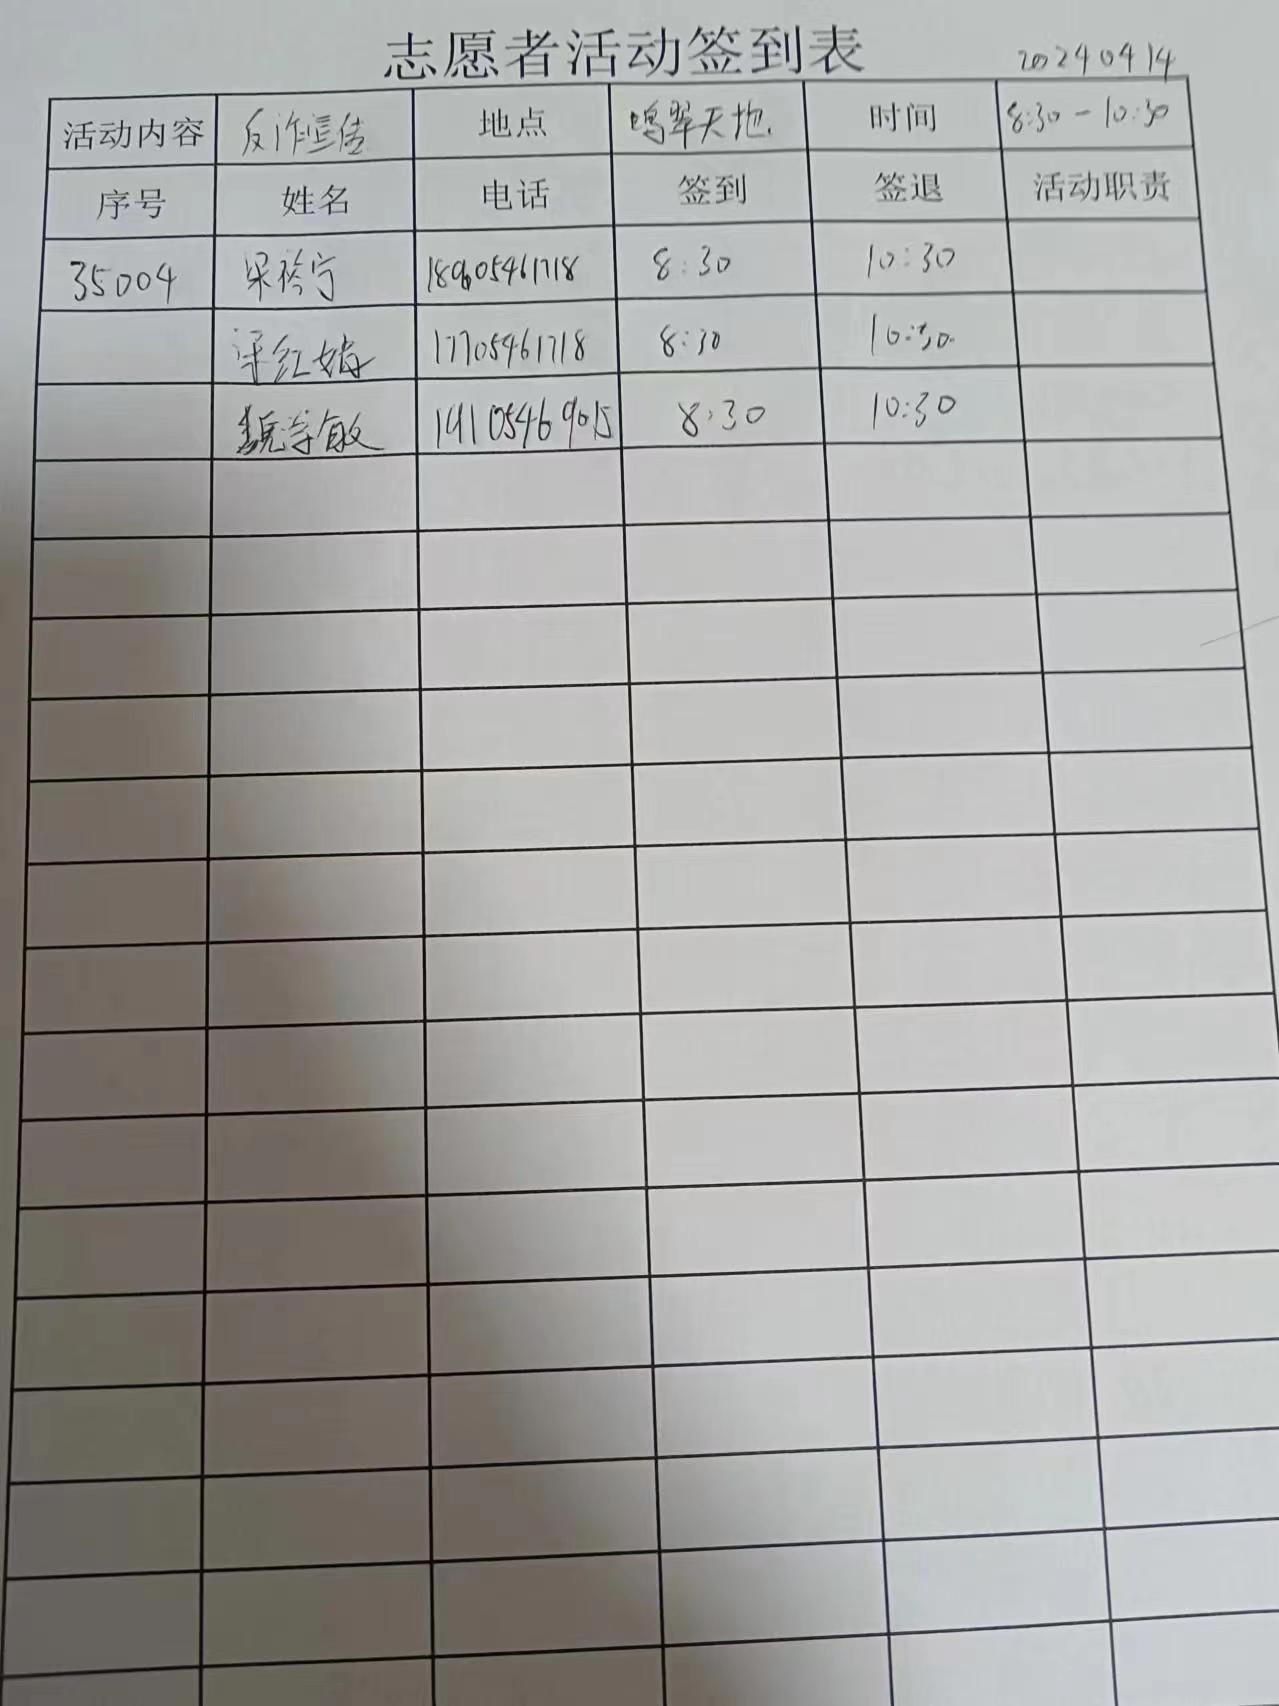 志愿者活动签到表 20240414
活动内容 反诈宣传 地点 鸣翠天地. 时间 8:30-10:30
序号 姓名 电话 签到 签退 活动职责
35004 8:30 10:30
17705461718 8:30 10:30.
8:30 10:30